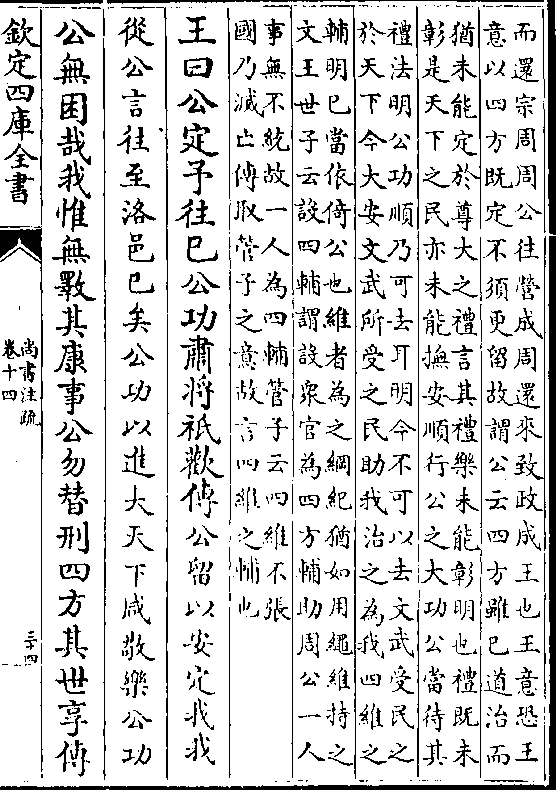 而還宗周周公往營成周還來致政成王也王意恐王
意以四方既定不須更留故謂公云四方雖已道治而
猶未能定於尊大之禮言其禮樂未能彰明也禮既未
彰是天下之民亦未能撫安順行公之大功公當待其
禮法明公功順乃可去耳明今不可以去文武受民之
於天下今大安文武所受之民助我治之為我四維之
輔明已當依倚公也維者為之綱紀猶如用繩維持之
文王世子云設四輔謂設衆官為四方輔助周公一人
事無不統故一人為四輔管子云四維不張
國乃滅亡傳取管子之意故言四維之輔也
王曰公定予往已公功肅將祗歡傳公留以安定我我
從公言往至洛邑已矣公功以進大天下咸敬樂公功
公無困哉我惟無斁其康事公勿替刑四方其世享傳
欽定四庫全書
尚書注疏
卷十四
三十四